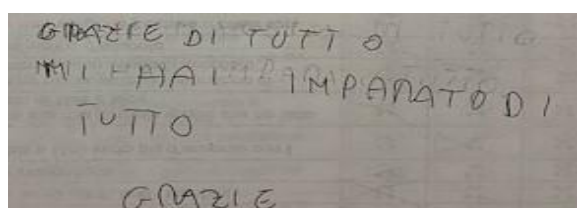 GRAZIE DI TUTTO
MI HAI IMPARATO DI
TUTTO
GRAZIE